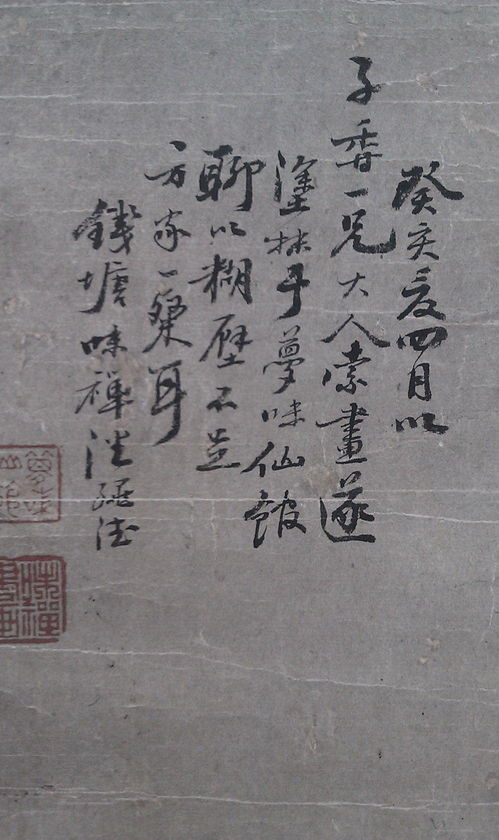 癸亥夏四月以
子香一兄大人索畫遂
塗抹于夢味仙館
聊以糊壁不足
方家一粲耳
錢塘味禪
味禪